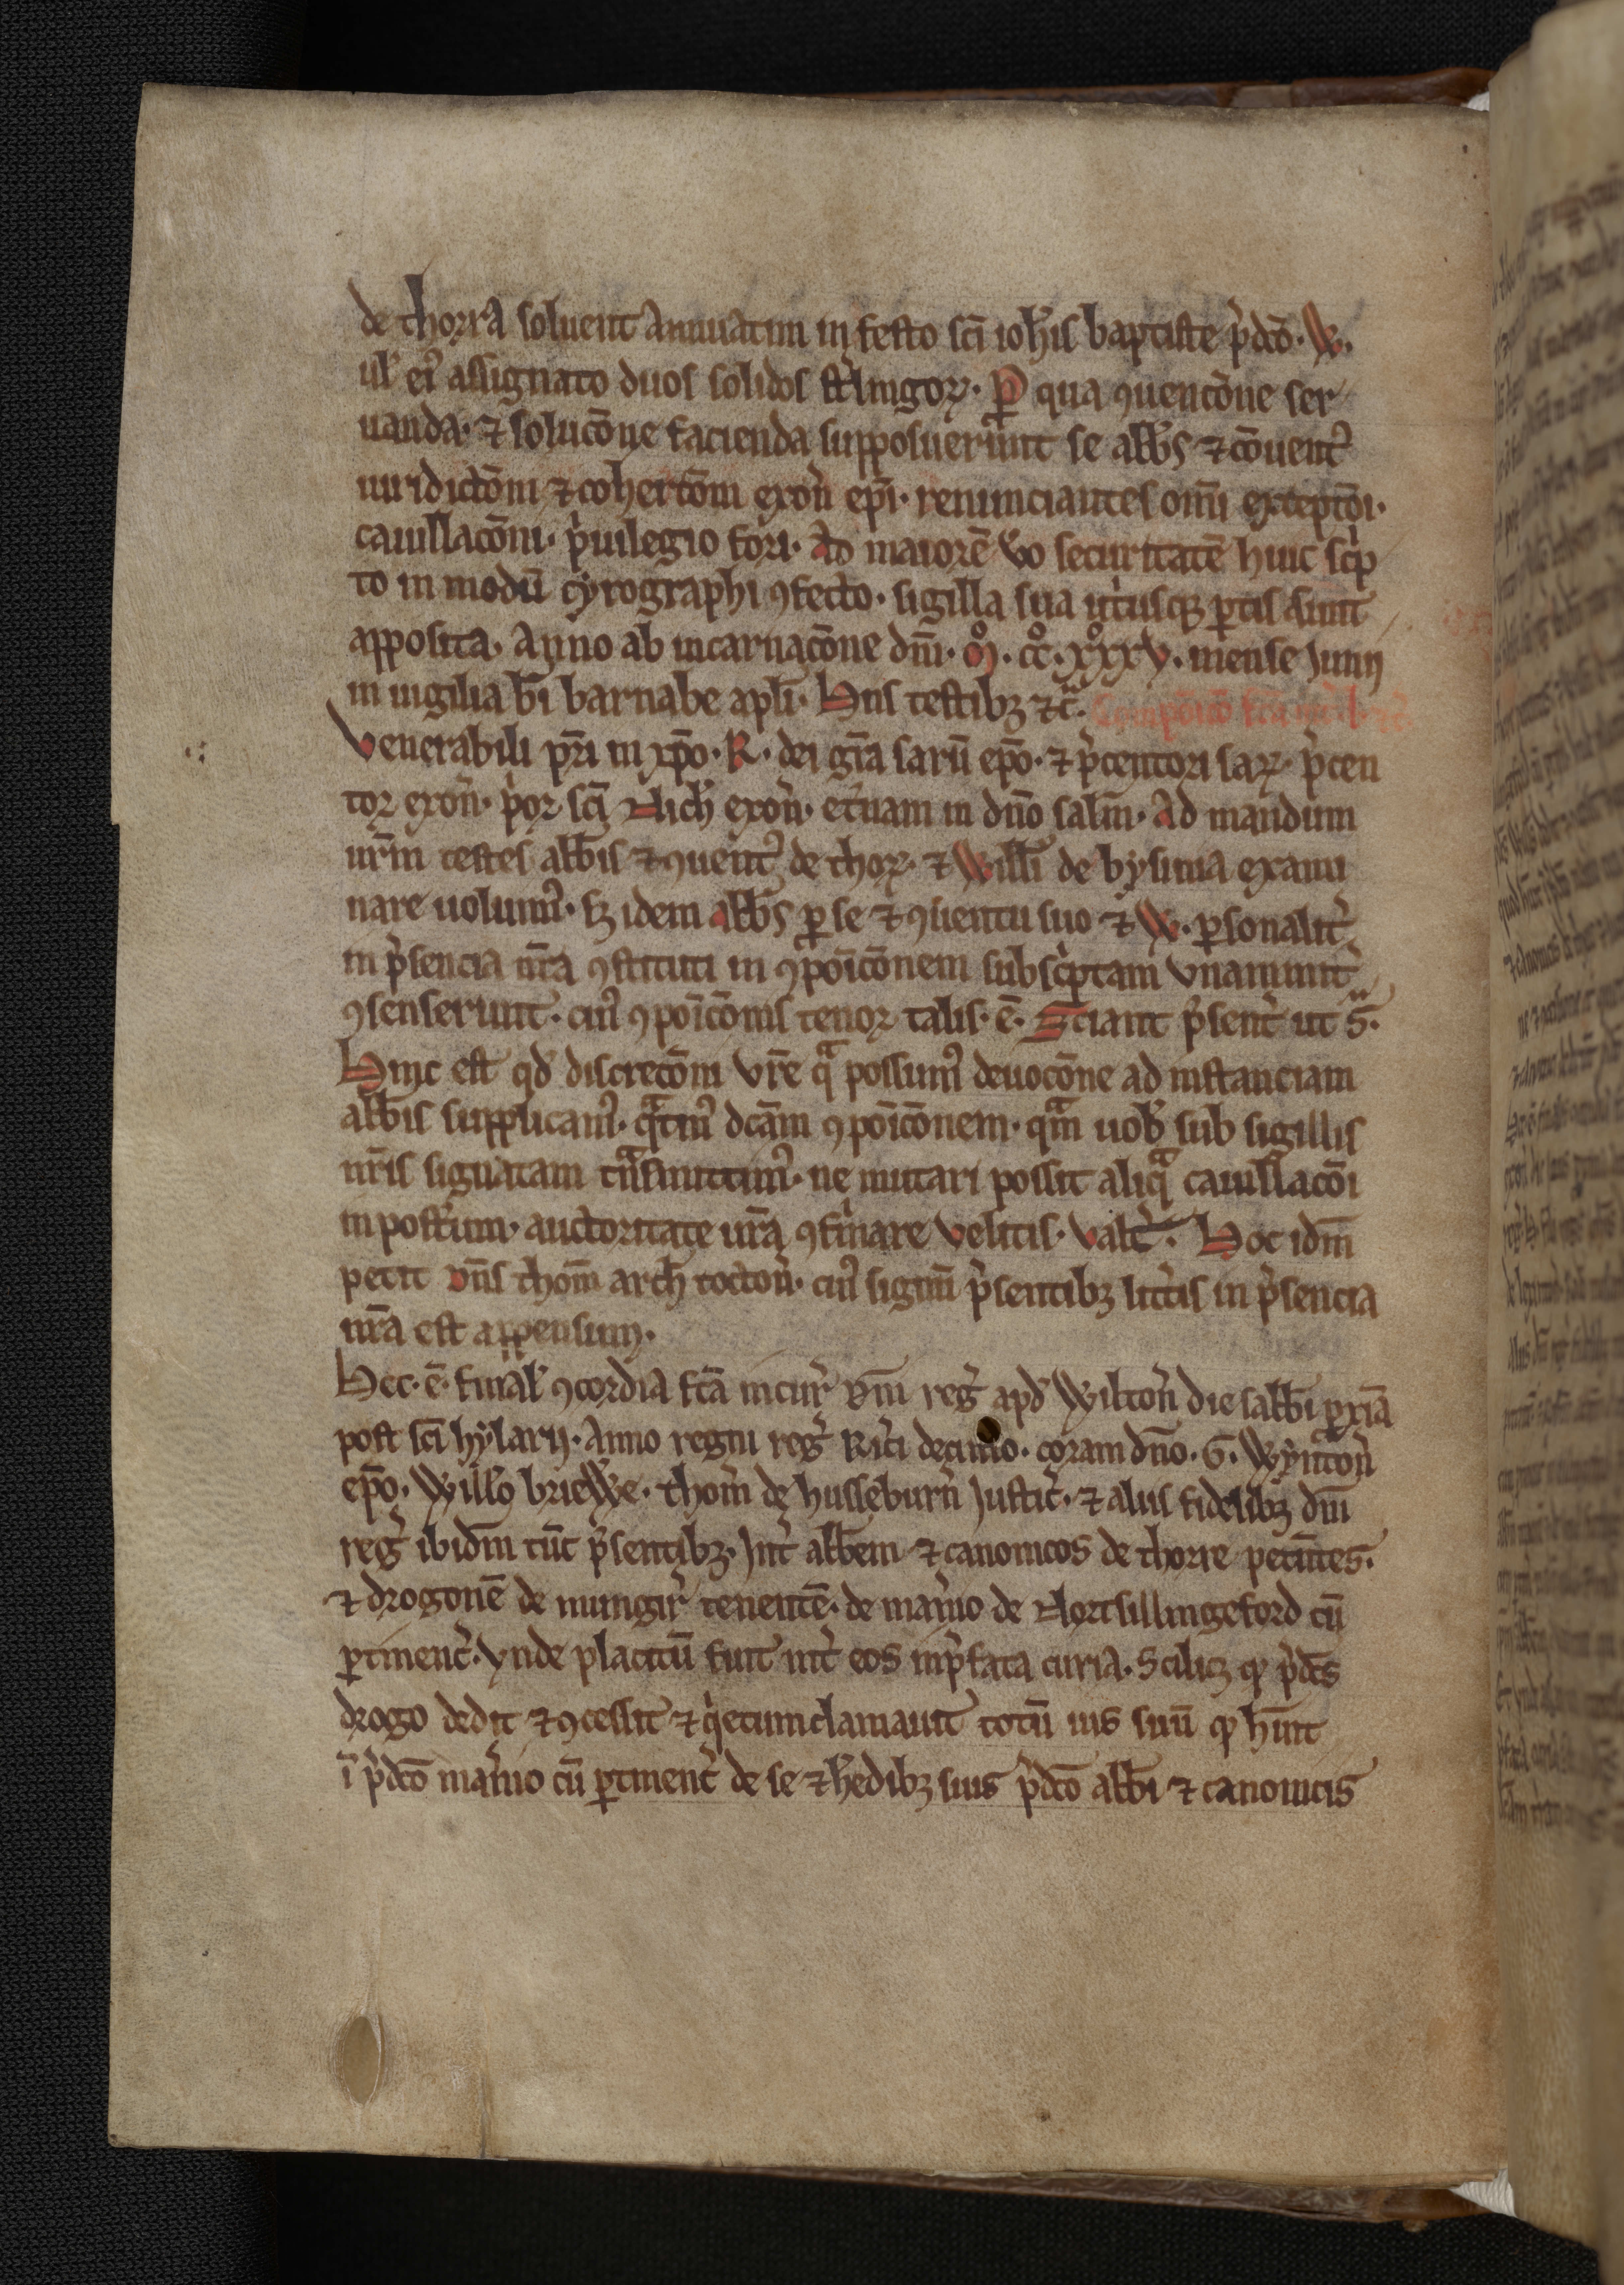 de thorra soluent annuatim in festo sc̄i ioh̄is baptiste p̓dc̄o · W ·
ul̓ ei᷒ assignato duos solidos st̓lingoꝝ · ꝑ qua ꝯuenc̄one ser
uanda · ⁊ soluc̄one facienda supposuerunt se abb̄s ⁊ c̄ouent᷒
iuridictōni ⁊ cohertōni exon̓ ep̄i · renunciantes om̄i exceptōi ·
cauillac̄oni · p̓uilegio fori · Ad maiorē v̓o securitatē huic sc̓p
to in modū cyrographi ꝯfecto · sigilla sua ut̓usqꝫ ꝑtis sunt
apposita · Anno ab incarnac̄one dn̄i · m̊ · cc̊ · xxx̊v · mense Junij
in uigilia b̄i barnabe apl̄i · Hiis testibꝫ ⁊c̄ ·
Venerabili pr̄i in xp̄o · R · dei gr̄a sarū ep̄o · ⁊ p̓centori saꝝ · p̓cen
tor exon̓ · p̓or sc̄i Nich̓ exon̓ · et̓nam in dn̄o sal̄m · Ad mandum
ur̄m testes abb̄is ⁊ ꝯuent᷒ de thoꝝ · ⁊ Will̄i de bysima exami
nare uolum᷒ · sꝫ idem abb̄s ꝑ se ⁊ ꝯuentu suo ⁊ W · ꝑsonalit̓
in p̓sencia nr̄a ꝯstituti in ꝯpōic̄onem subsc̓ptam vnanimit̓
ꝯsenserunt · cui᷒ ꝯpōic̄onis tenor talis · ē · Sciant p̓sent̓ ut s̄ ·
Hinc est qd̓ discrec̄oni vr̄e qͣ possum᷒ deuoc̄one ad instanciam
abb̄is supplicam᷒ · qͣtin᷒ dc̄am ꝯpōic̄onem · qͣm uob̓ sub sigillis
nr̄is signatam tnͣsmittim᷒ · ne mutari possit aliqͣ cauillac̄oi
in post̓um · auctoritate ur̄a ꝯfirmare velitis · valet̓ · Hoc idm̄
petit dn̄s thom̄ arch̓ tocton̓ · cui᷒ sigīm p̓sentibꝫ litt̓is in p̓sencia
nr̄a est appensum ·
Hec · ē · final̓ ꝯcordia fc̄a in cur̓ dn̄i reg̓ apd̓ Wilton̓ die sabb̄i ꝓxīa
post sc̄i hylarij · Anno regni reg̓ Ric̓i decimo · coram dn̄o · G · Wynton̓
ep̄o · Will̄o briewe · thom̓ de husseburn̓ Justic̓ · ⁊ aliis fidelibꝫ dn̄i
reg̓ ibidm̄ tūc p̓sentibꝫ · Int̓ abb̄em ⁊ canonicos de thorre petentes ·
⁊ drogonē de mungir̓ tenentē · de man̓io de Nortsillingeford cū
ꝑtinenc̓ · vnde placitū fuit int̓ eos in p̓fata curia · Scilicꝫ qp p̓dc̄s
drogo dedit ⁊ ꝯcessit ⁊ q̓etumclamauit totū ius suū qp h̄uit
ī p̓dc̄o man̓io cū ꝑtinenc̓ de se ⁊ h̓edibꝫ suis p̓dc̄o abb̄i ⁊ canonicis